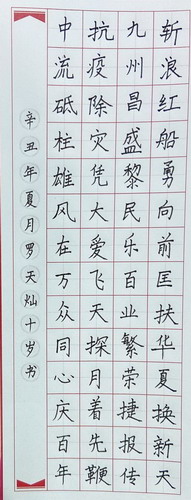 斩浪红船勇向前匡扶华夏换新天
九州昌盛黎民乐百业繁荣捷报传
抗疫除灾凭大爱飞天探月着先鞭
中流砥柱雄风在万众同心庆百年
辛丑年夏月罗天灿十岁书